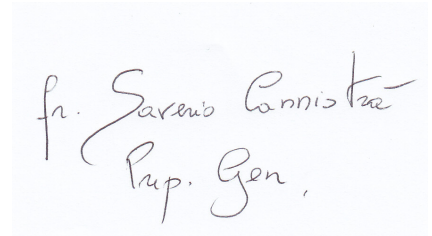 fr. Saverio Cannistrà
Prep. Gen.